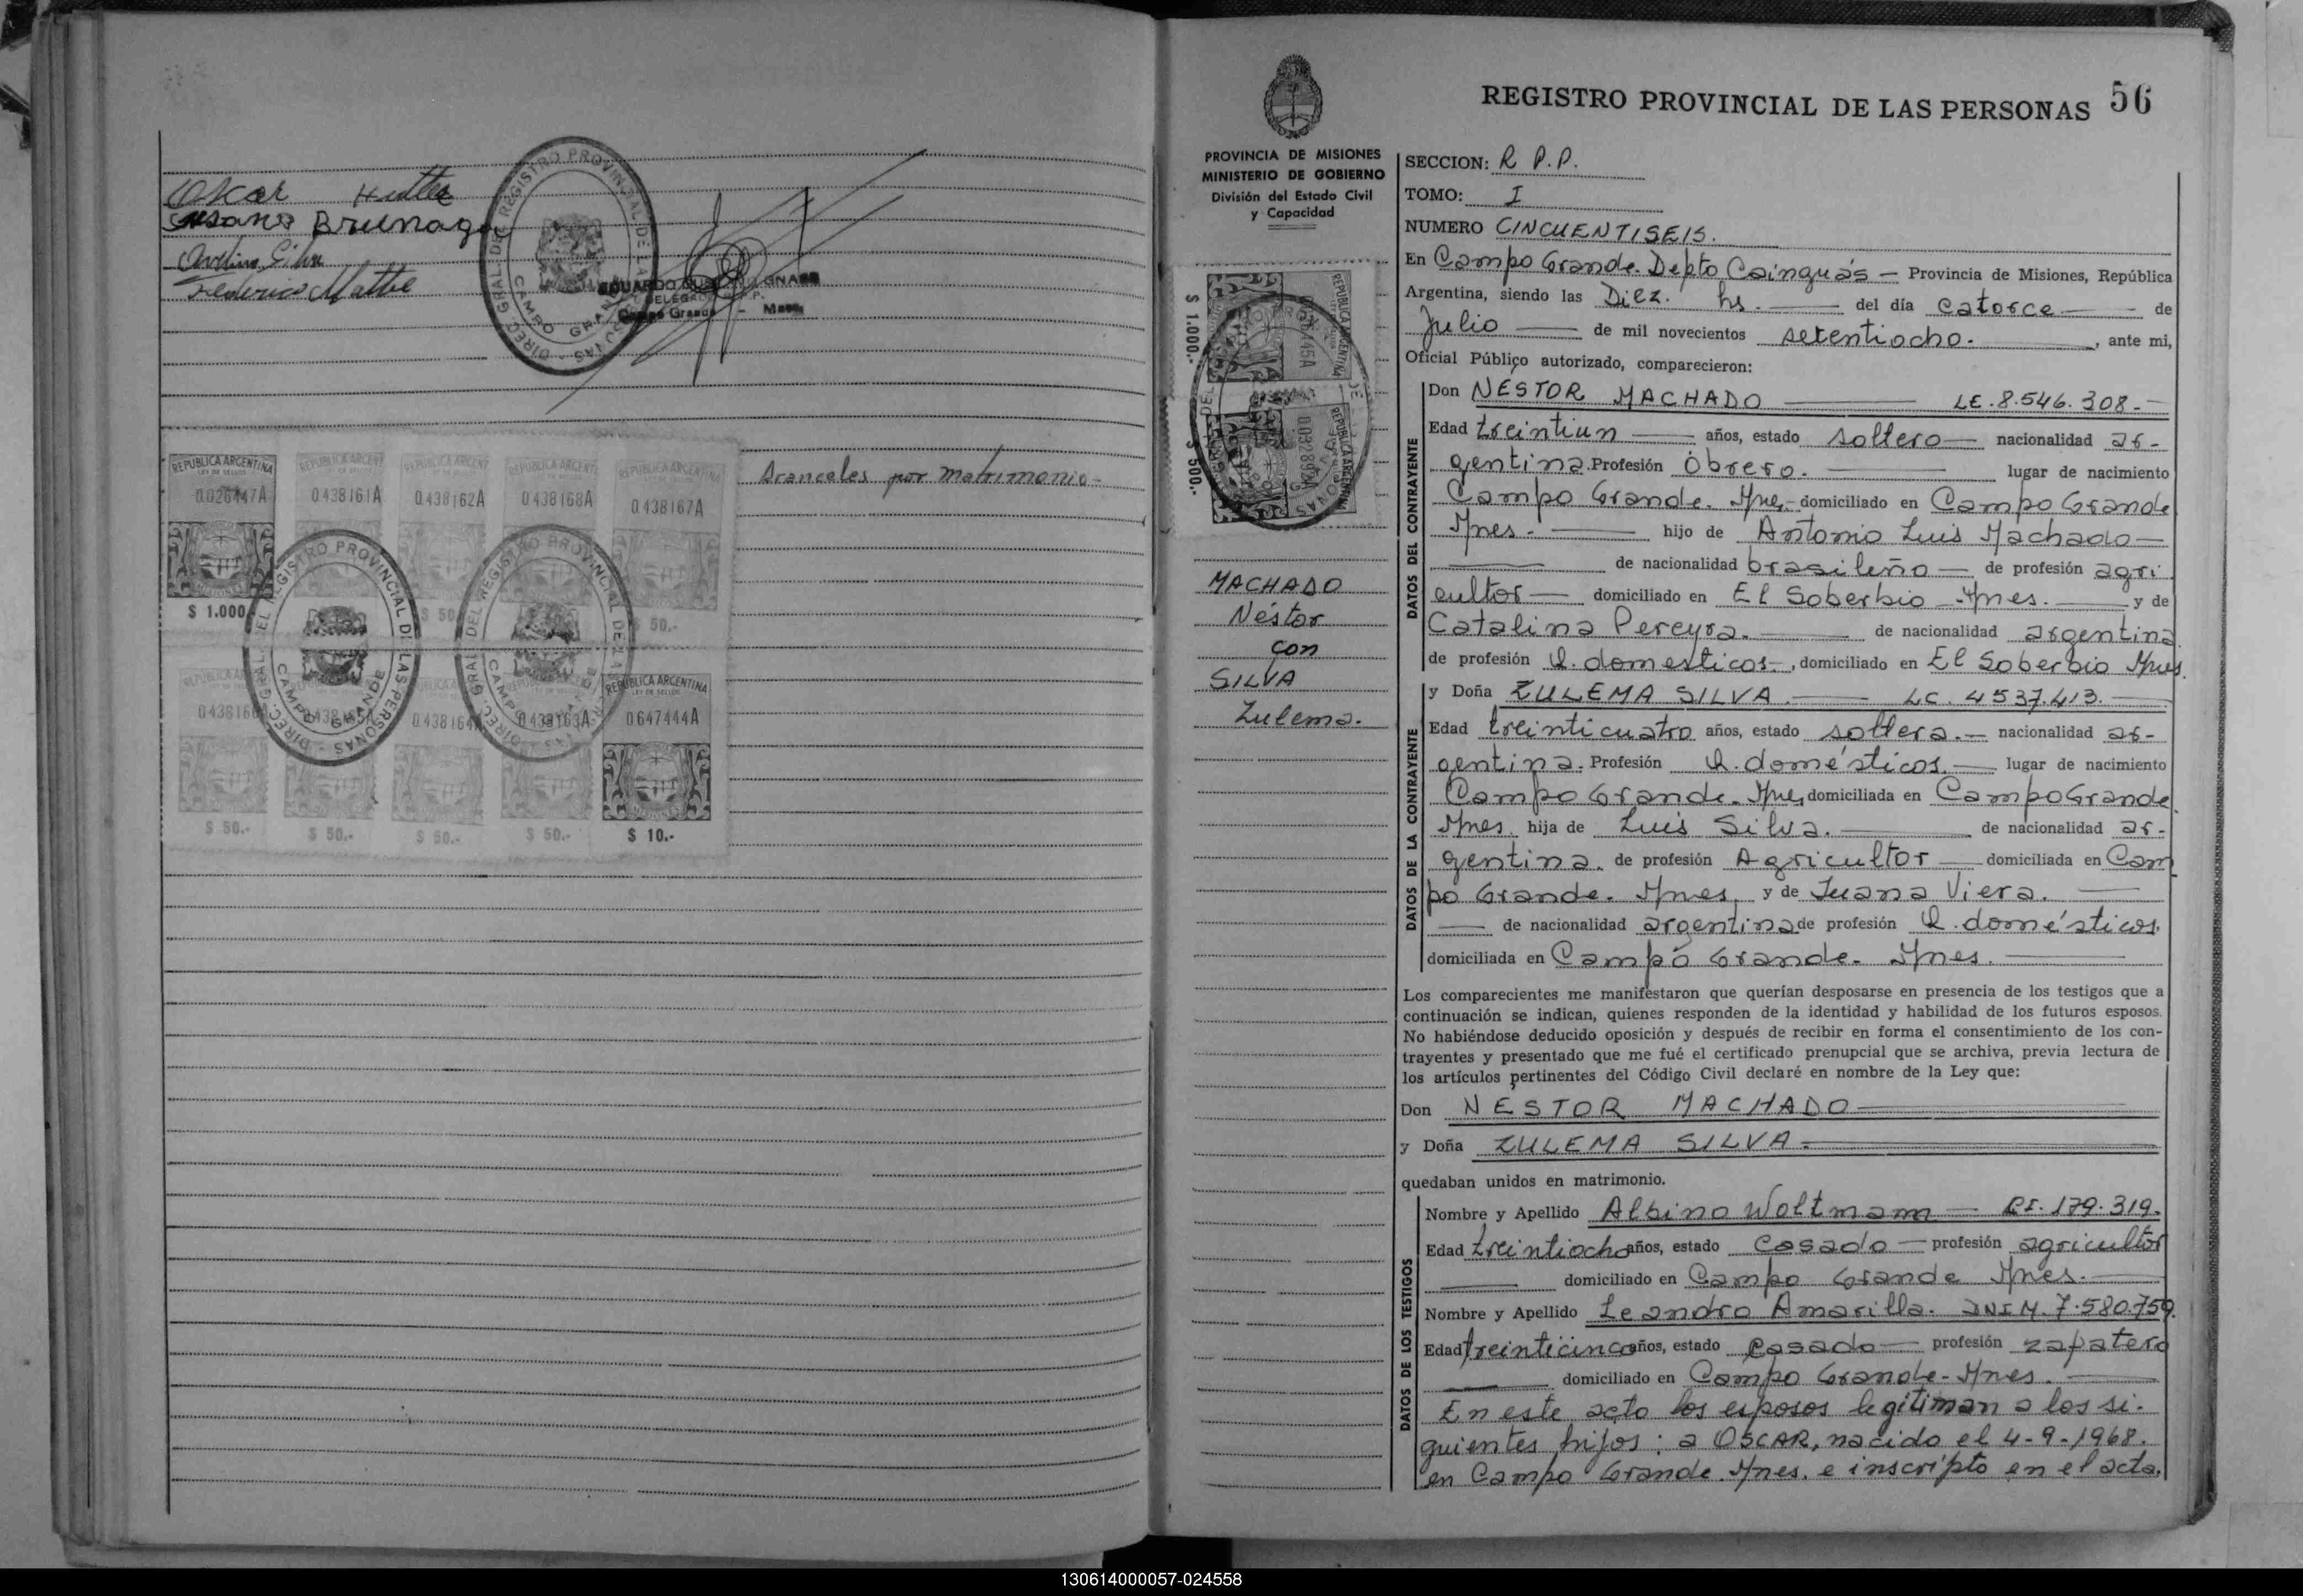 Oscar
Susana Brunaga
Avelino Silva
Federico Mathe
DIREC. GRAL. DEL REGISTRO PROVINCIAL DE LAS PERSONAS
CAMPO GRANDE
EDUARDO
DELEGADO
Campo Grande - Mnes.
REPUBLICA ARGENTINA
LEY DE SELLOS
0.026447A
0.438161A
0.438162A
0.438168A
0.438167A
Aranceles por matrimonio-
$ 1.000
$ 50
$ 50.-
DIREC. GRAL. DEL REGISTRO PROVINCIAL DE LAS PERSONAS
CAMPO GRANDE
0.438164A
0.438163A
0.647444A
$ 50.-
$ 50.-
$ 50.-
$ 50.-
$ 10.-
REGISTRO PROVINCIAL DE LAS PERSONAS 56
PROVINCIA DE MISIONES
MINISTERIO DE GOBIERNO
División del Estado Civil
y Capacidad
$ 1.000.-
$ 500.-
MACHADO
Néstor
con
SILVA
Zulema.
SECCION: R P.P.
TOMO: I
NUMERO CINCUENTISEIS.
En Campo Grande. Depto Cainguás — Provincia de Misiones, República
Argentina, siendo las Diez. hs. — del día catorce — de
Julio — de mil novecientos setentiocho. —, ante mi,
Oficial Público autorizado, comparecieron:
DATOS DEL CONTRAYENTE
Don NÉSTOR MACHADO — LE. 8.546.308.-
Edad treintiun — años, estado soltero — nacionalidad ar-
gentina. Profesión Obrero. — lugar de nacimiento
Campo Grande. Mnes.- domiciliado en Campo Grande
Mnes. — hijo de Antonio Luis Machado —
— de nacionalidad brasileño — de profesión agri
cultor — domiciliado en El Soberbio - Mnes. — y de
Catalina Pereyra. — de nacionalidad argentina
de profesión Q. domesticos -, domiciliado en El Soberbio Mnes.
DATOS DE LA CONTRAYENTE
y Doña ZULEMA SILVA. — LC. 4537.413. —
Edad treinticuatro años, estado soltera. — nacionalidad ar-
gentina. Profesión Q. domésticos. — lugar de nacimiento
Campo Grande. Mnes, domiciliada en Campo Grande.
Mnes. hija de Luis Silva. — de nacionalidad ar-
gentina. de profesión Agricultor — domiciliada en Cam
po Grande. Mnes, y de Juana Viera. —
— de nacionalidad argentina de profesión Q. domésticos.
domiciliada en Campo Grande. Mnes. —
Los comparecientes me manifestaron que querían desposarse en presencia de los testigos que a
continuación se indican, quienes responden de la identidad y habilidad de los futuros esposos.
No habiéndose deducido oposición y después de recibir en forma el consentimiento de los con-
trayentes y presentado que me fué el certificado prenupcial que se archiva, previa lectura de
los artículos pertinentes del Código Civil declaré en nombre de la Ley que:
Don NESTOR MACHADO —
y Doña ZULEMA SILVA. —
quedaban unidos en matrimonio.
DATOS DE LOS TESTIGOS
Nombre y Apellido Albino Woltmann — CI. 179.319.
Edad treintiocho años, estado Casado — profesión agricultor
— domiciliado en Campo Grande Mnes. —
Nombre y Apellido Leandro Amarilla. DNI M. 7.580.759.
Edad treinticinco años, estado Casado — profesión zapatero
— domiciliado en Campo Grande - Mnes. —
En este acto los esposos legitiman a los si-
guientes hijos: a OSCAR, nacido el 4-9-1968.
en Campo Grande. Mnes. e inscripto en el acta.
130614000057-024558